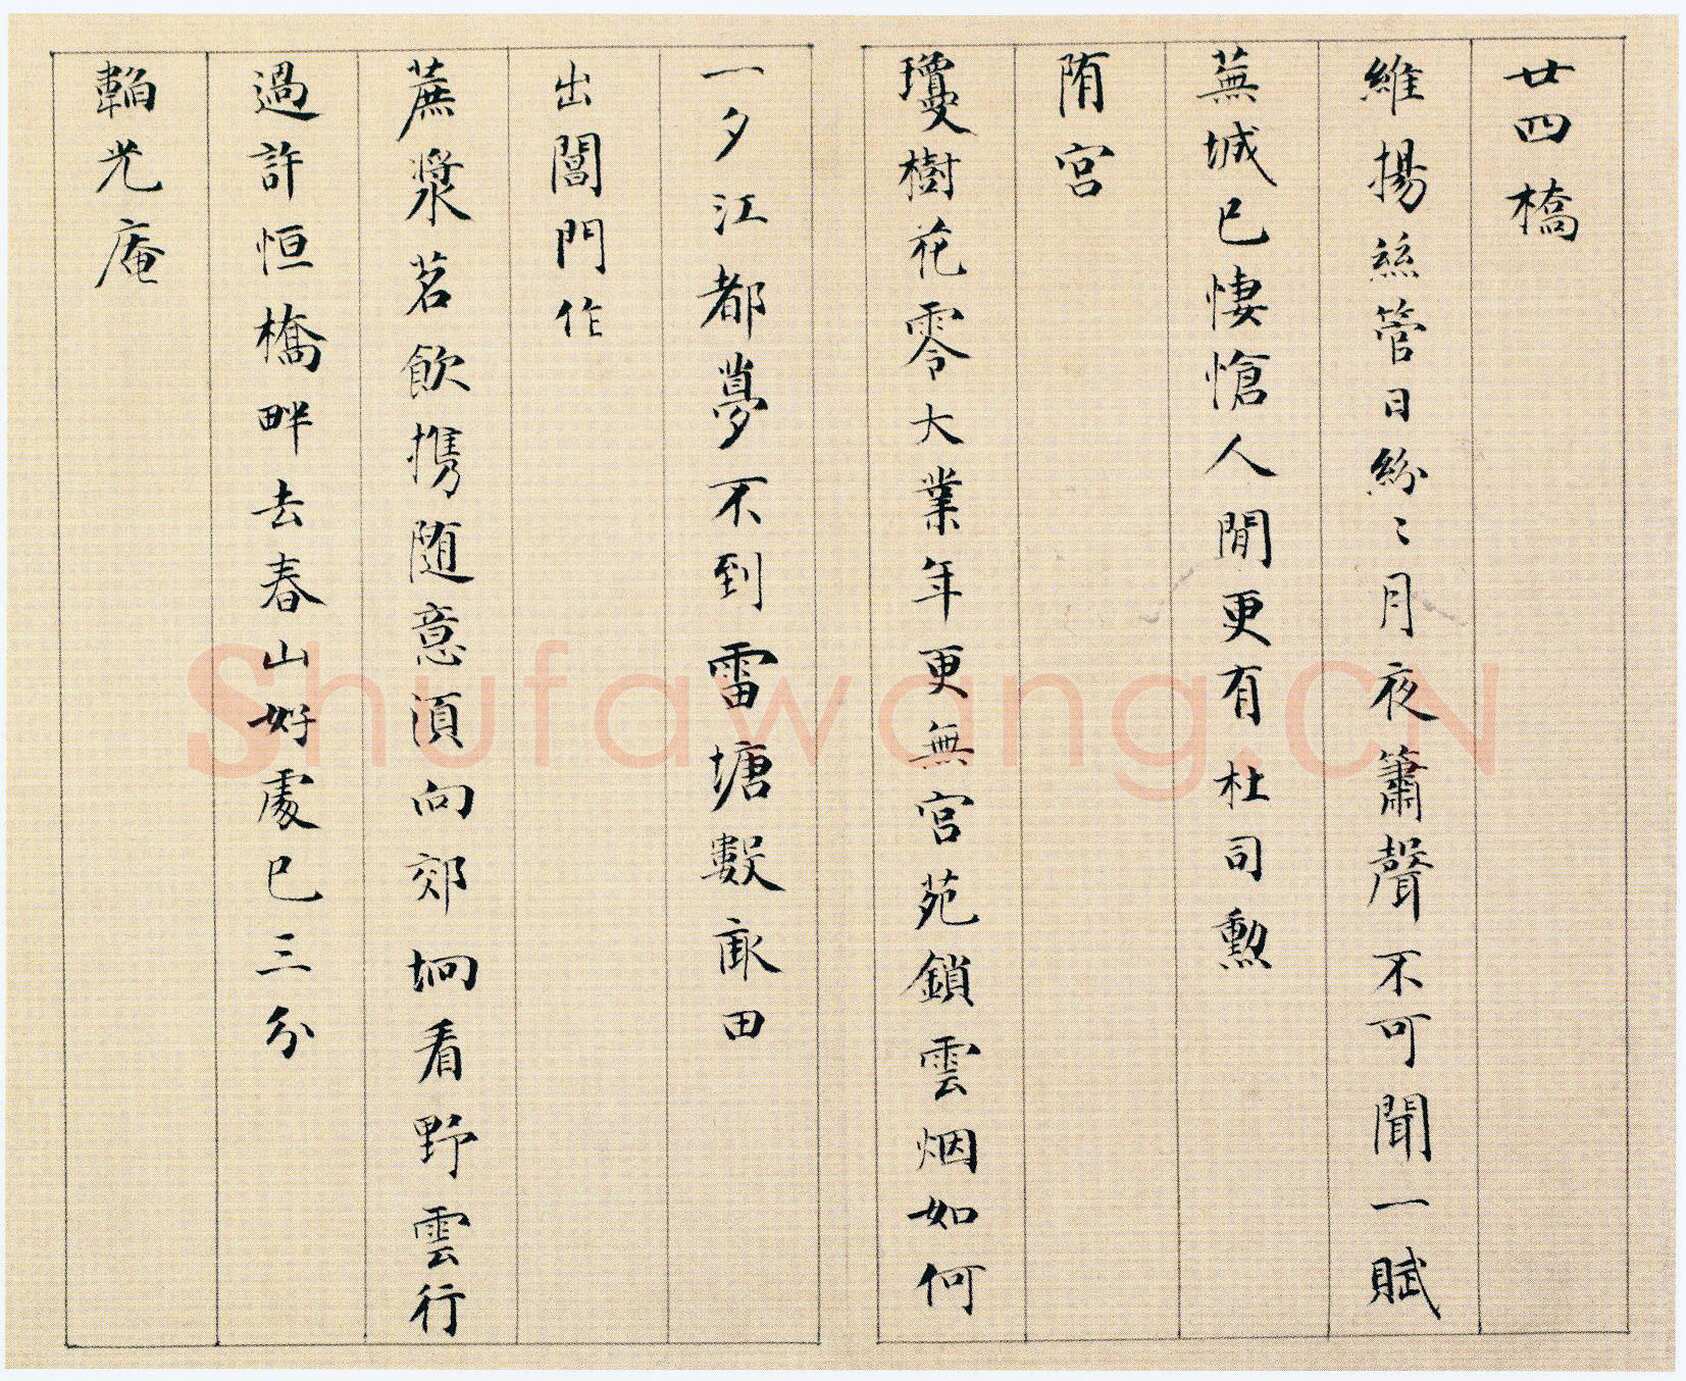 廿四橋
維揚絲管日紛〻月夜簫聲不可聞一賦
蕪城已悽愴人閒更有杜司勲
隋宮
瓊樹花零大業年更無宮苑鎖雲烟如何
一夕江都夢不到雷塘數畝田
出閶門作
蔗漿茗飲携随意須向郊坰看野雲行
過許恒橋畔去春山好處已三分
韜光庵
Shufawang.CN